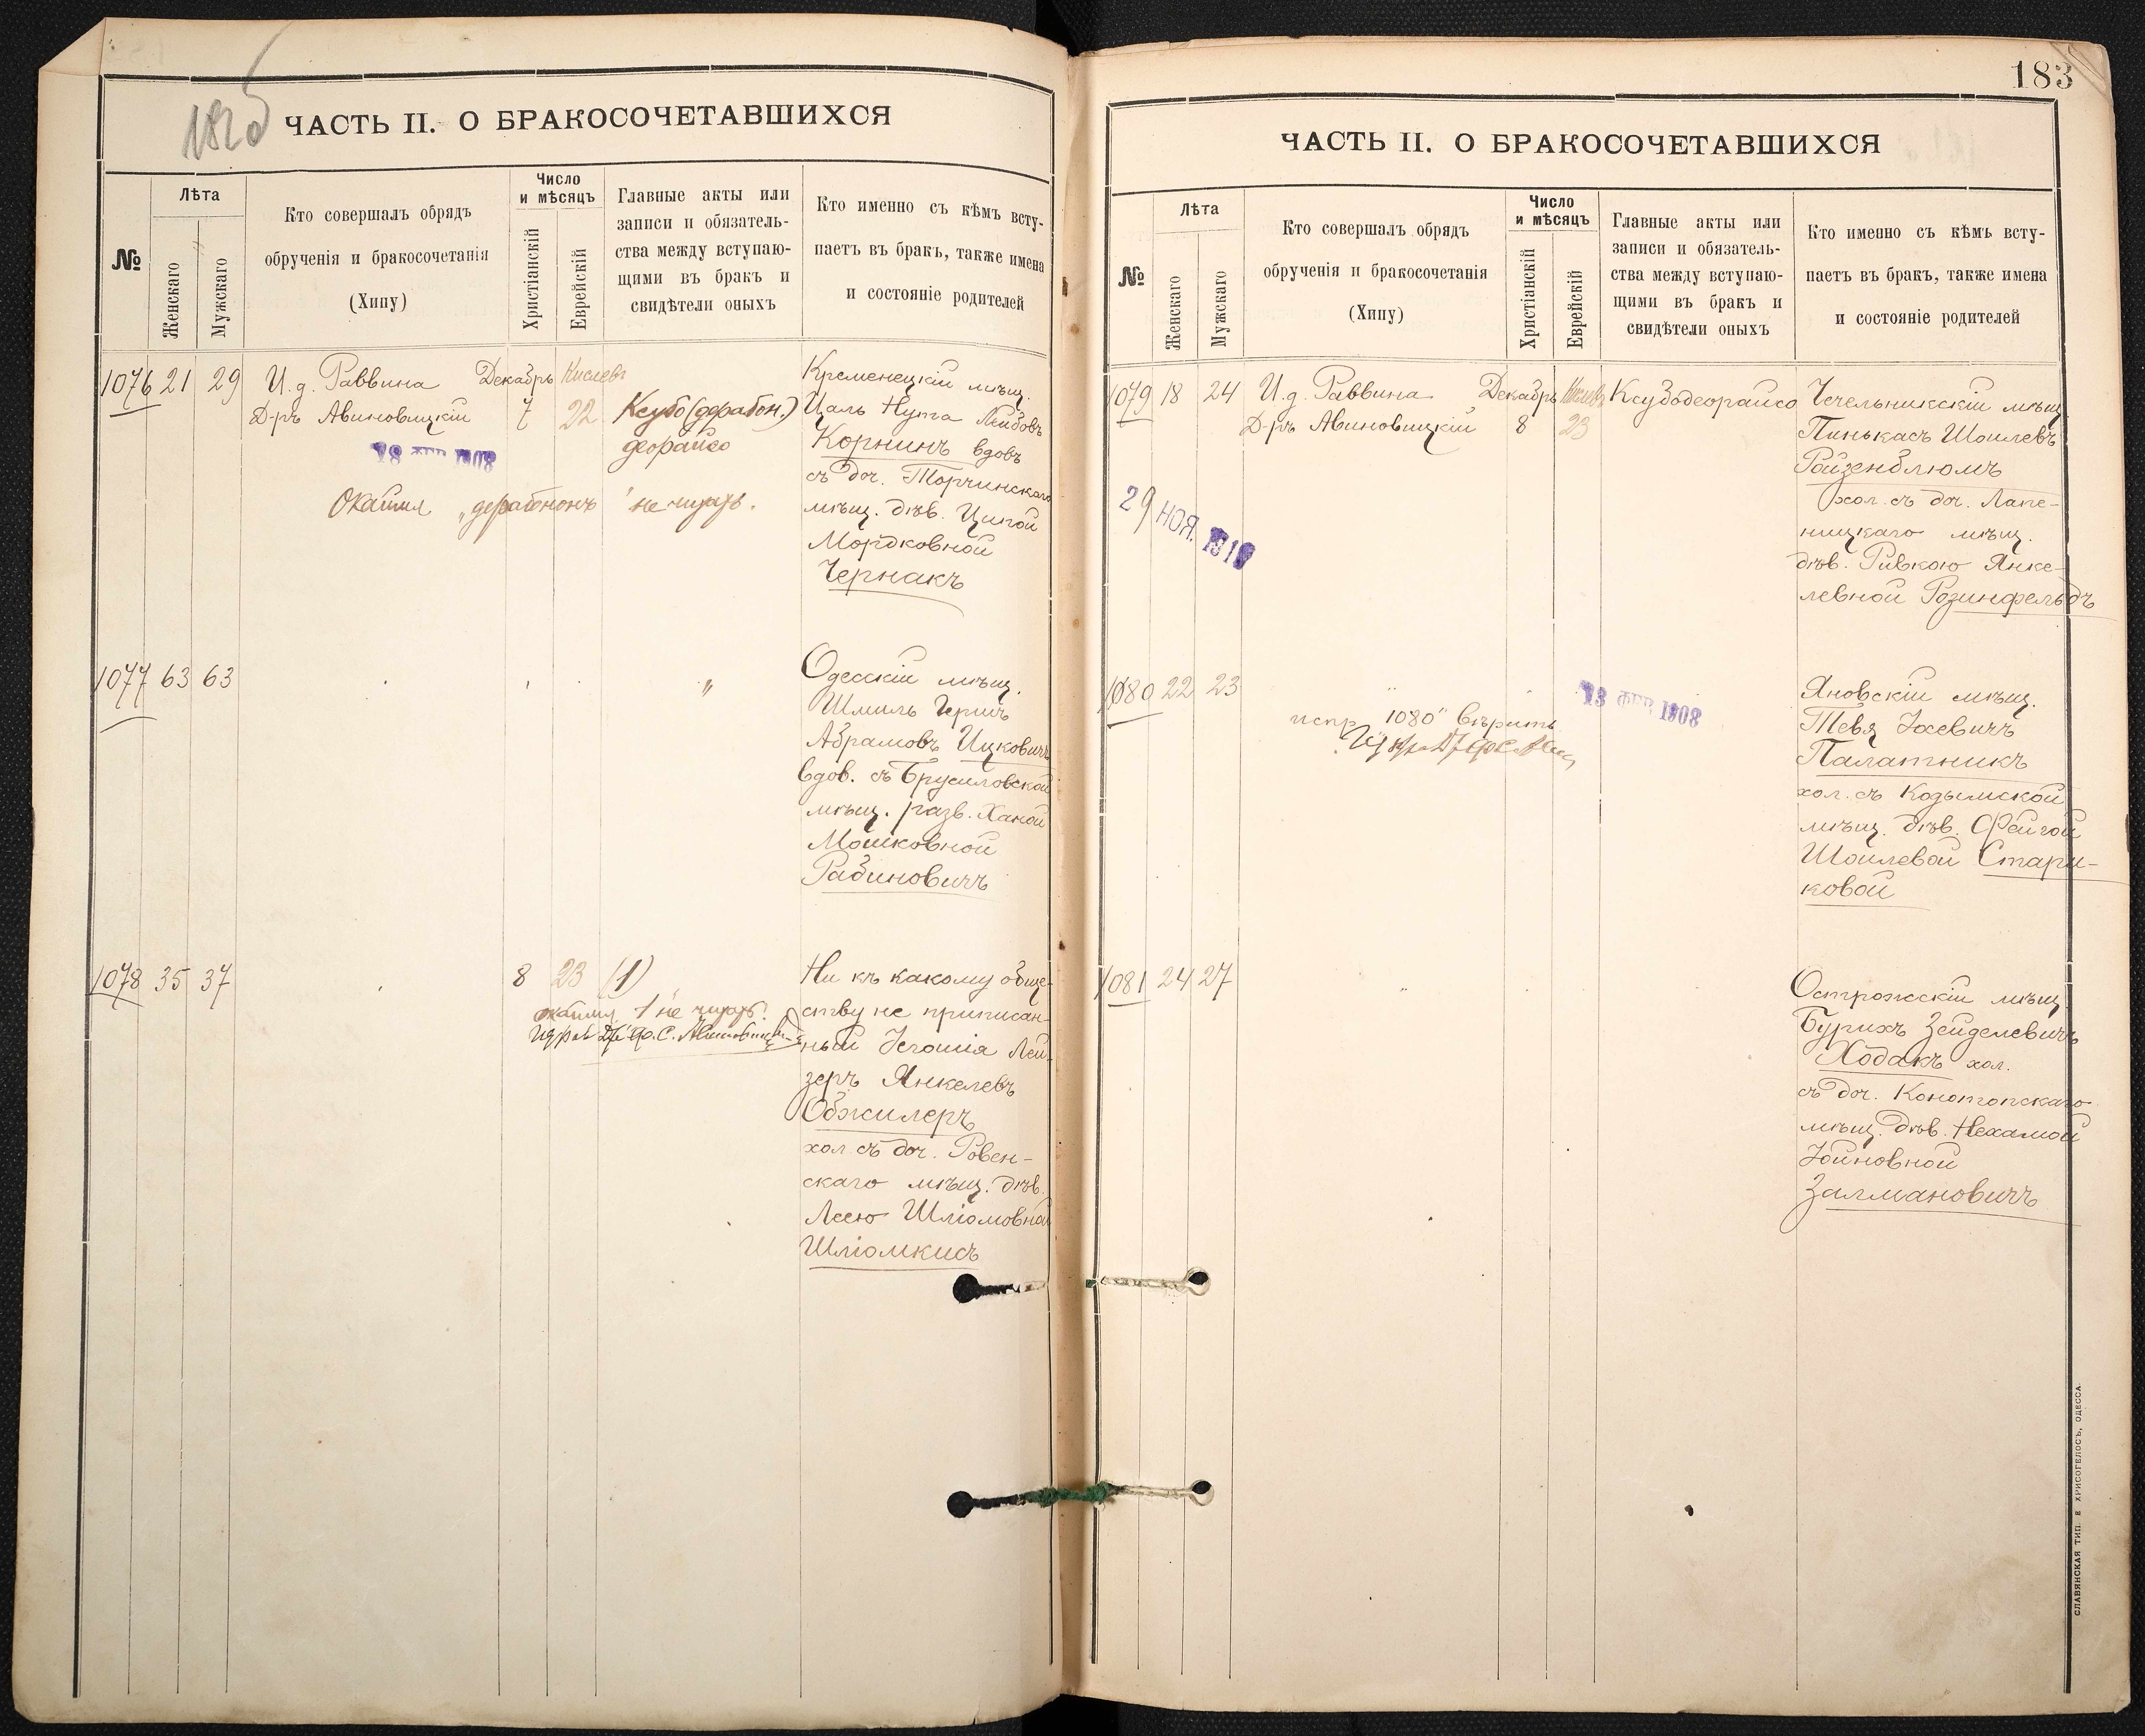 182б
ЧАСТЬ II. О БРАКОСОЧЕТАВШИХСЯ
№
Лѣта
Женскаго
Мужскаго
Кто совершалъ обрядъ
обрученія и бракосочетанія
(Хипу)
Число
и мѣсяцъ
Христіанскій
Еврейскій
Главные акты или
записи и обязатель-
ства между вступаю-
щими въ бракъ и
свидѣтели оныхъ
Кто именно съ кѣмъ всту-
паетъ въ бракъ, также имена
и состояніе родителей
1076 21 29
И.д. Раввина
Д-ръ Авиновицкій
Декабрь Кислевъ
7 22
Ксубо (дерабон.)
деорайсо
Кременецкій мѣщ.
Цаль Нута Лейбовъ
Корнинъ вдовъ
съ доч. Торчинскаго
мѣщ. дѣв. Ципой
Мордковной
Чернакъ
1908
"дерабононъ" не читать.
1077 63 63
"
Одесскій мѣщ.
Шмиль Гершъ
Абрамовъ Ицковичъ
вдов. съ Брусиловской
мѣщ. разв. Ханой
Мошковной
Рабиновичъ
1078 35 37
8 23 (1)
1 не читать.
Ни къ какому обще-
ству не приписан-
ный Іегошія Лей-
зеръ Янкелевъ
Обжилеръ
хол. съ доч. Ровен-
скаго мѣщ. дѣв.
Леею Шліомовной
Шліомкисъ
183
ЧАСТЬ II. О БРАКОСОЧЕТАВШИХСЯ
№
Лѣта
Женскаго
Мужскаго
Кто совершалъ обрядъ
обрученія и бракосочетанія
(Хипу)
Число
и мѣсяцъ
Христіанскій
Еврейскій
Главные акты или
записи и обязатель-
ства между вступаю-
щими въ бракъ и
свидѣтели оныхъ
Кто именно съ кѣмъ всту-
паетъ въ бракъ, также имена
и состояніе родителей
1079 18 24
И.д. Раввина
Д-ръ Авиновицкій
Декабрь Кислевъ
8 23
Ксубодеорайсо
Чечельникскій мѣщ.
Пинькасъ Шоилевъ
Ройзенблюмъ
хол. съ доч. Лапе-
ницкаго мѣщ.
дѣв. Ривкою Янке-
левной Розинфельдъ
29 НОЯ.
1080 22 23
испр. "1080" вѣрить
1908
Яновскій мѣщ.
Тевя Хаевичъ
Палатникъ
хол. съ Козымской
мѣщ. дѣв. Фейгой
Шоилевой Стари-
ковой
1081 24 27
Острожскій мѣщ.
Бурихъ Зейделевичъ
Ходакъ хол.
съ доч. Конотопскаго
мѣщ. дѣв. Нехамой
Іойновной
Залмановичъ
СЛАВЯНСКАЯ ТИП. Е ХРИСОГЕЛОСЪ, ОДЕССА.